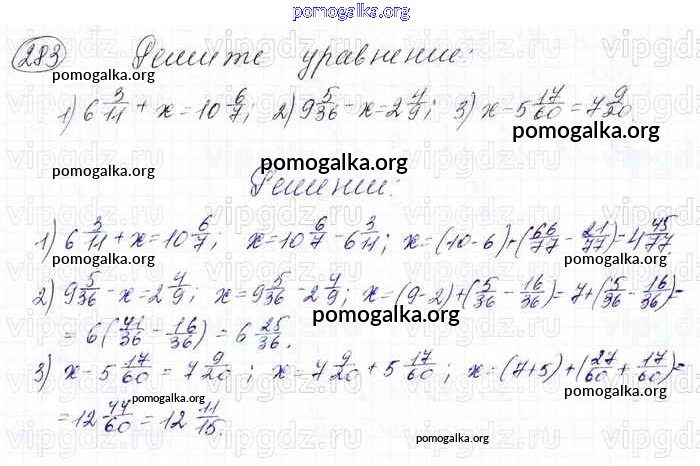 pomogalka.org
283 Решите уравнение:
pomogalka.org
1) 6 3/11 + x = 10 6/7; 2) 9 5/36 - x = 2 4/9; 3) x - 5 17/60 = 7 9/20.
pomogalka.org
pomogalka.org
Решение:
pomogalka.org
1) 6 3/11 + x = 10 6/7; x = 10 6/7 - 6 3/11; x = (10 - 6) + (66/77 - 21/77) = 4 45/77
pomogalka.org
pomogalka.org
2) 9 5/36 - x = 2 4/9; x = 9 5/36 - 2 4/9; x = (9 - 2) + (5/36 - 16/36) = 7 + (5/36 - 16/36) =
pomogalka.org
= 6 (41/36 - 16/36) = 6 25/36.
3) x - 5 17/60 = 7 9/20; x = 7 9/20 + 5 17/60; x = (7 + 5) + (27/60 + 17/60) =
pomogalka.org
pomogalka.org
= 12 44/60 = 12 11/15.
pomogalka.org